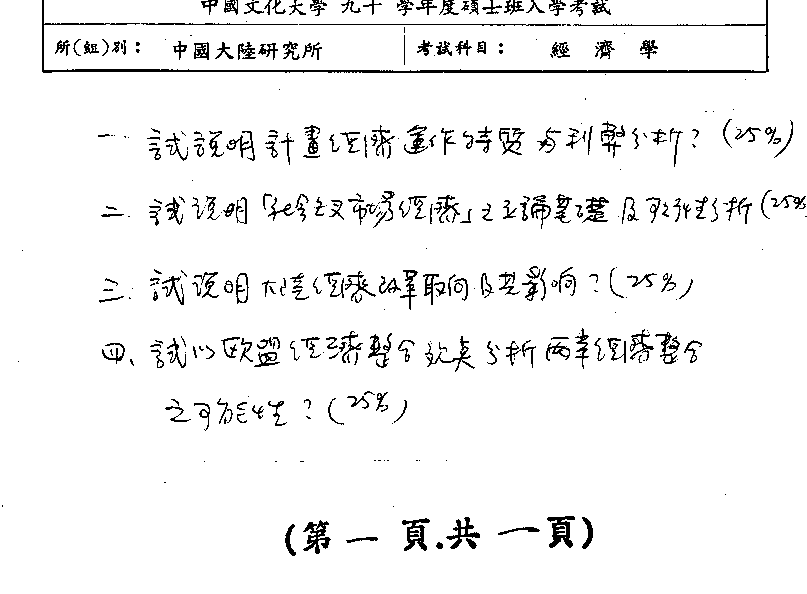 中國文化大學 九十 學年度碩士班入學考試
所(組)別: 中國大陸研究所 考試科目: 經 濟 學
一 試說明計畫經濟運作特質与利弊分析?(25%)
二. 試說明「社会主义市場經濟」之理論基礎及可行性分析(25%
三. 試說明大陸經濟改革取向及其影响?(25%)
四、試以欧盟經濟整合観点分析両岸經濟整合
之可能性?(25%)
(第 一 頁.共 一 頁)